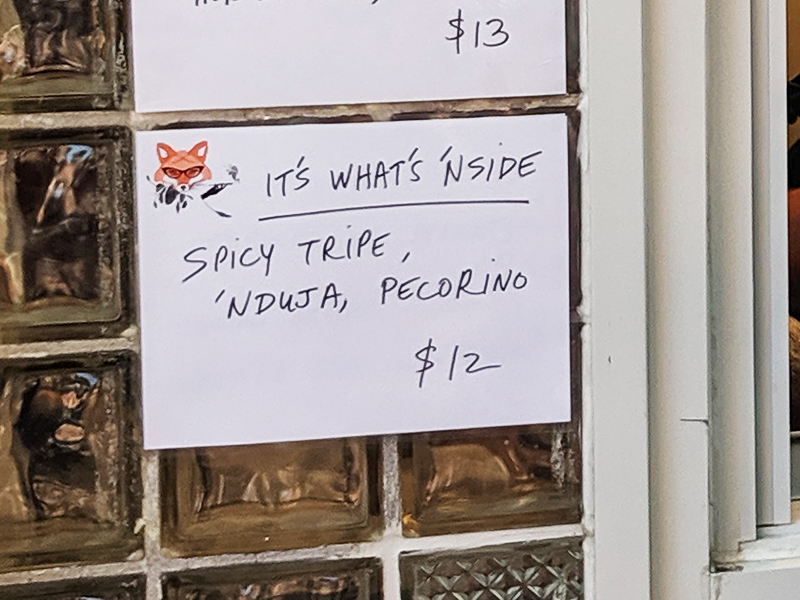 $13
IT'S WHAT'S 'NSIDE
SPICY TRIPE,
'NDUJA, PECORINO
$12